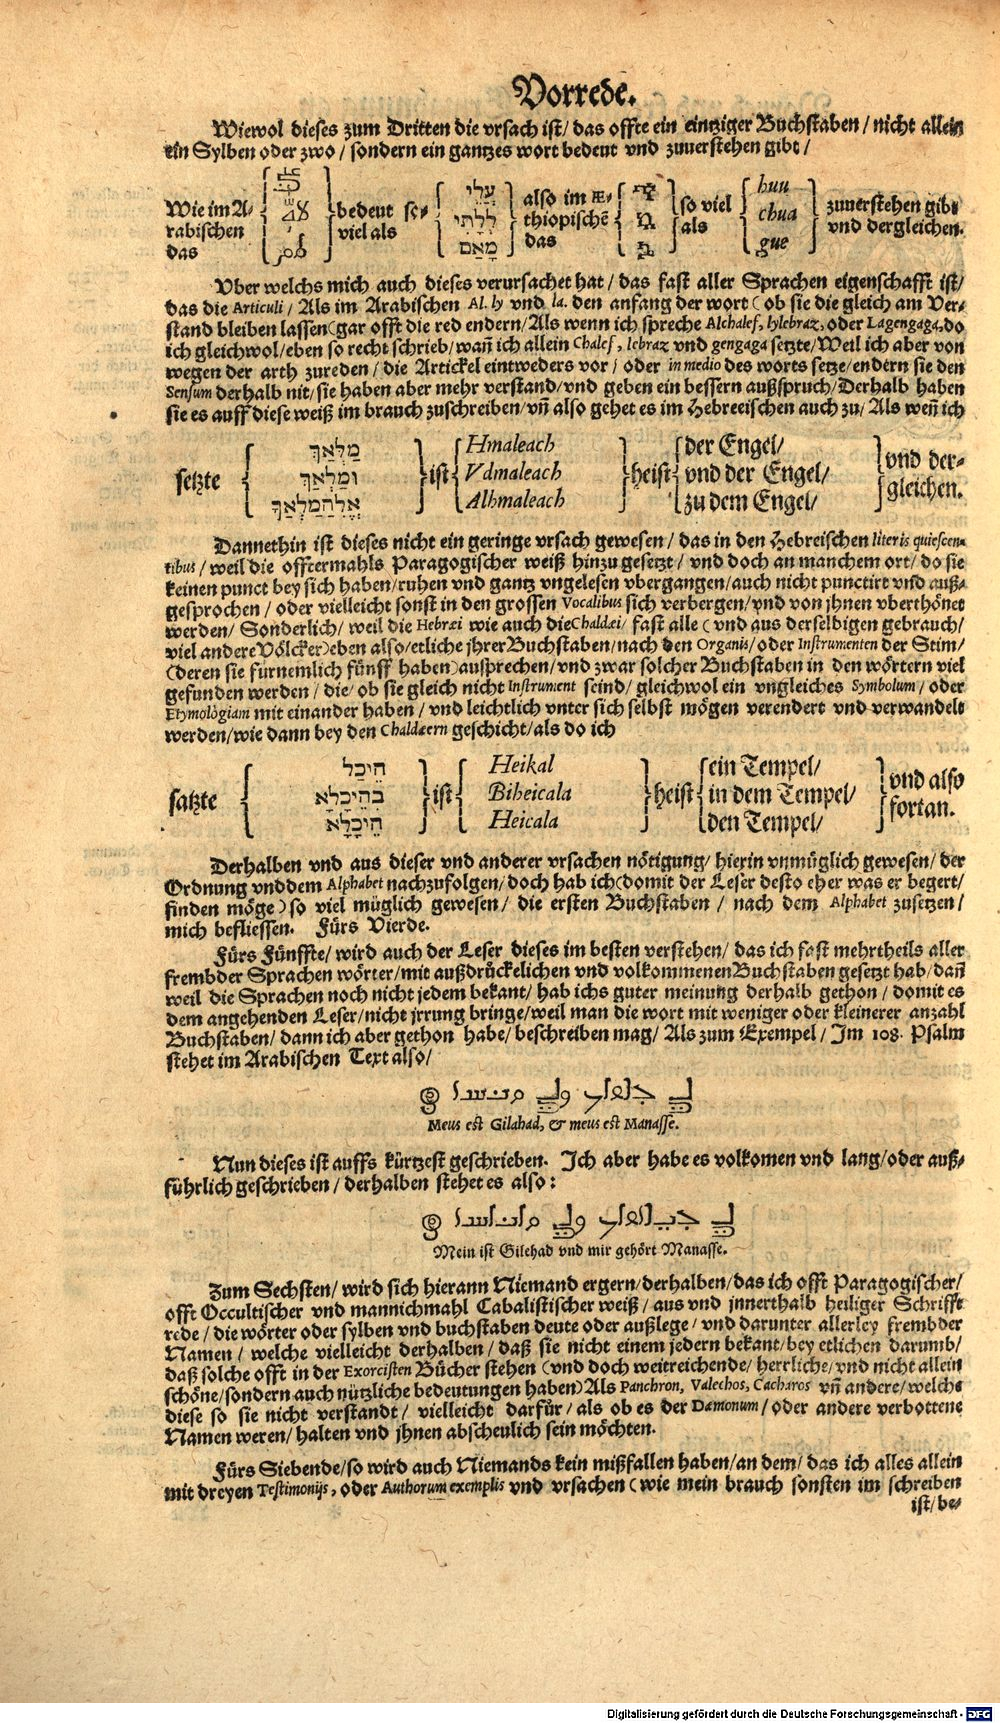 Vorrede.
Wiewol dieses zum Dritten die vrsach ist/ das offte ein eintziger Buchstaben / nicht allein
ein Sylben oder zwo / sondern ein gantzes wort bedeut vnd zuuerstehen gibt /
Wie im A-
rabischen
das
bedeut so-
viel als
עֲלֵי
לְלָתִי
מָאַם
also im Æ-
thiopischẽ
das
so viel
als
huu
chua
gue
zuuerstehen gibt
vnd dergleichen.
Vber welchs mich auch dieses verursachet hat / das fast aller Sprachen eigenschafft ist/
das die Articuli / Als im Arabischen Al. ly vnd la. den anfang der wort ( ob sie die gleich am Ver-
stand bleiben lassen) gar offt die red endern/ Als wenn ich spreche Alchalef, lylebraz, oder Lagengaga, do
ich gleichwol/ eben so recht schrieb/ wañ ich allein Chalef, lebraz vnd gengaga setzte/ Weil ich aber von
wegen der arth zureden / die Artickel eintweders vor / oder in medio des worts setze/ endern sie den
Sensum derhalb nit/ sie haben aber mehr verstand/ vnd geben ein bessern außspruch/ Derhalb haben
sie es auff diese weiß im brauch zuschreiben/ vñ also gehet es im Hebreeischen auch zu/ Als weñ ich
setzte
מַלְאַךְ
וּמַלְאַךְ
אֱלִהַמַלְאַךְ
ist
Hmaleach
Vdmaleach
Alhmaleach
heist
der Engel/
vnd der Engel/
zu dem Engel/
vnd der-
gleichen.
Dannethin ist dieses nicht ein geringe vrsach gewesen / das in den Hebreischen literis quiescen-
tibus / weil die offtermahls Paragogischer weiß hinzu gesetzt / vnd doch an manchem ort/ do sie
keinen punct bey sich haben/ ruhen vnd gantz vngelesen vbergangen/ auch nicht punctirt vnd auß-
gesprochen / oder vielleicht sonst in den grossen Vocalibus sich verbergen/ vnd von jhnen vberthönet
werden/ Sonderlich/ weil die Hebræi wie auch die Chaldæi/ fast alle ( vnd aus derselbigen gebrauch/
viel andere Völcker) eben also/ etliche jhrer Buchstaben/ nach den Organis/ oder Instrumenten der Stim/
(deren sie fürnemlich fünff haben) aussprechen/ vnd zwar solcher Buchstaben in den wörtern viel
gefunden werden / die/ ob sie gleich nicht Instrument seind/ gleichwol ein vngleiches Symbolum / oder
Etymologiam mit einander haben / vnd leichtlich vnter sich selbst mögen verendert vnd verwandelt
werden/ wie dann bey den Chaldæern geschicht/ als do ich
satzte
הֵיכַל
בְהֵיכְלָא
הֵיכְלָא
ist
Heikal
Biheicala
Heicala
heist
ein Tempel/
in dem Tempel/
den Tempel/
vnd also
fortan.
Derhalben vnd aus dieser vnd anderer vrsachen nötigung/ hierin vnmüglich gewesen/ der
Ordnung vnd dem Alphabet nachzufolgen/ doch hab ich (domit der Leser desto eher was er begert/
finden möge) so viel müglich gewesen/ die ersten Buchstaben / nach dem Alphabet zusetzen/
mich beflissen. Fürs Vierde.
Fürs Fünffte/ wird auch der Leser dieses im besten verstehen/ das ich fast mehrtheils aller
frembder Sprachen wörter/ mit außdrückelichen vnd volkommenen Buchstaben gesetzt hab/ dañ
weil die Sprachen noch nicht jedem bekant/ hab ichs guter meinung derhalb gethon / domit es
dem angehenden Leser/ nicht jrrung bringe/ weil man die wort mit weniger oder kleinerer anzahl
Buchstaben/ dann ich aber gethon habe/ beschreiben mag/ Als zum Exempel / Im 108. Psalm
stehet im Arabischen Text also/
Meus est Gilahad, & meus est Manasse.
Nun dieses ist auffs kürtzest geschrieben. Ich aber habe es volkomen vnd lang/ oder auß-
führlich geschrieben / derhalben stehet es also:
Mein ist Gilehad vnd mir gehört Manasse.
Zum Sechsten/ wird sich hierann Niemand ergern/ derhalben/ das ich offt Paragogischer/
offt Occultischer vnd mannichmahl Cabalistischer weiß / aus vnd jnnerthalb heiliger Schrifft
rede / die wörter oder sylben vnd buchstaben deute oder außlege / vnd darunter allerley frembder
Namen / welche vielleicht derhalben / daß sie nicht einem jedern bekant/ bey etlichen darumb/
daß solche offt in der Exorcisten Bücher stehen ( vnd doch weitreichende/ herrliche/ vnd nicht allein
schöne/ sondern auch nützliche bedeutungen haben) Als Panchron, Valechos, Cacharos vñ andere/ welche
diese so sie nicht verstandt / vielleicht darfür/ als ob es der Dæmonum / oder andere verbottene
Namen weren/ halten vnd jhnen abscheulich sein möchten.
Fürs Siebende/ so wird auch Niemands kein mißfallen haben/ an dem/ das ich alles allein
mit dreyen Testimonijs, oder Authorum exemplis vnd vrsachen ( wie mein brauch sonsten im schreiben
ist/ be-
Digitalisierung gefördert durch die Deutsche Forschungsgemeinschaft - DFG